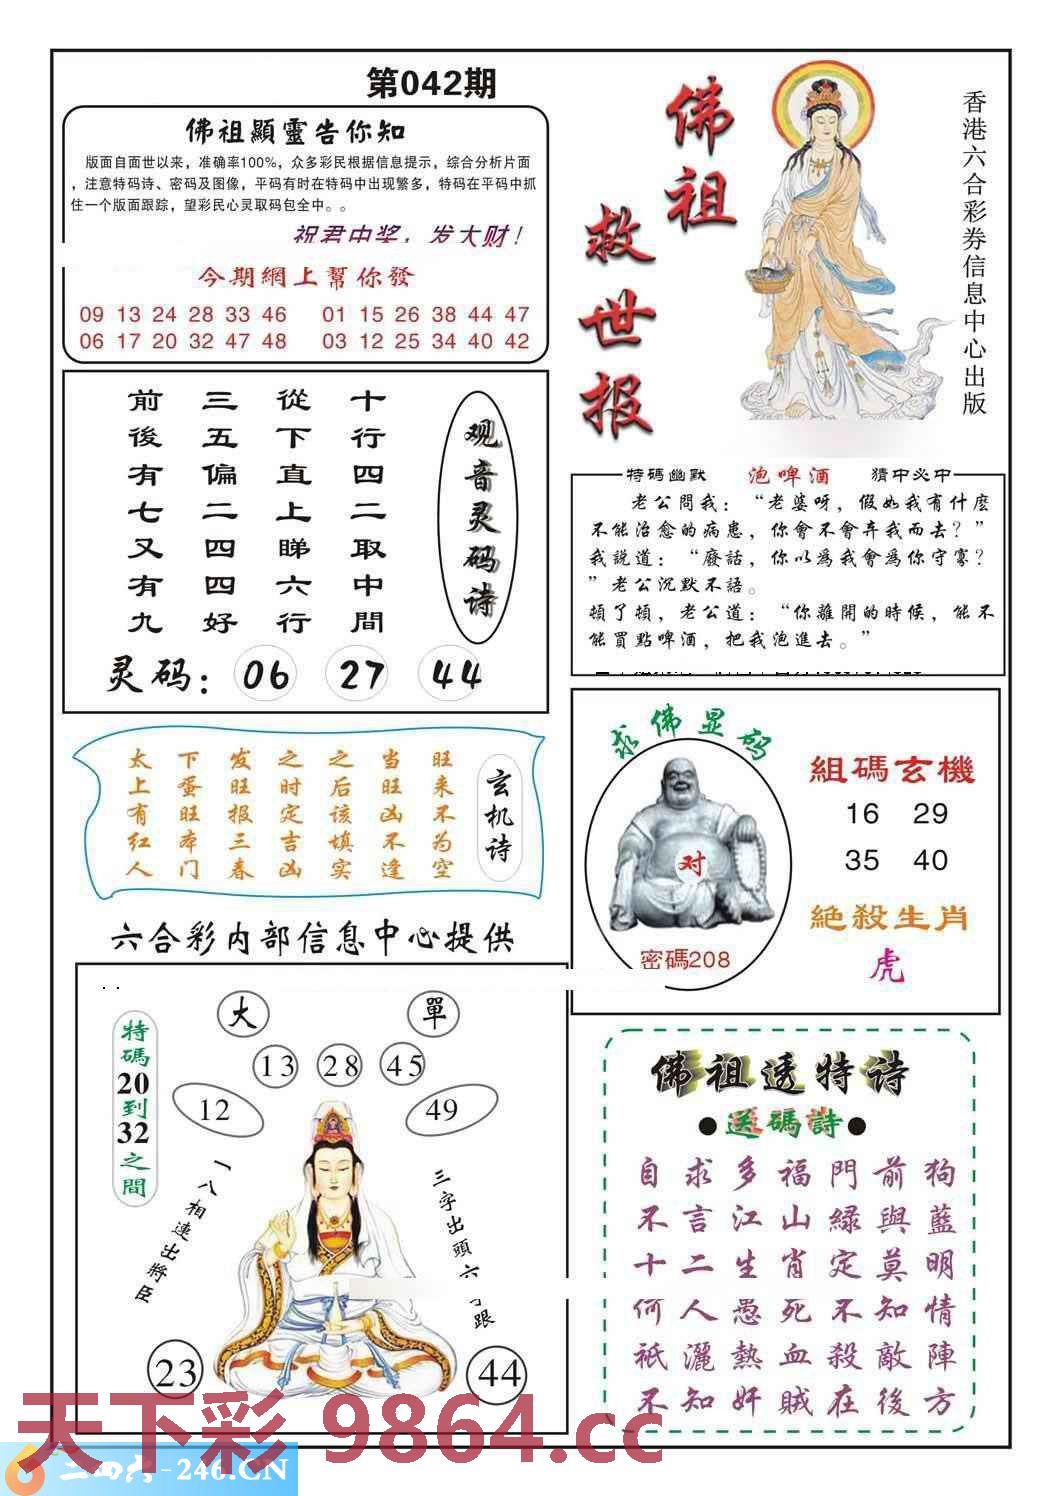 第042期
佛祖顯靈告你知
版面自面世以来，准确率100%，众多彩民根据信息提示，综合分析片面
，注意特码诗、密码及图像，平码有时在特码中出现繁多，特码在平码中抓
住一个版面跟踪，望彩民心灵取码包全中。。
祝君中奖，发大财！
今期網上幫你發
09 13 24 28 33 46 01 15 26 38 44 47
06 17 20 32 47 48 03 12 25 34 40 42
佛祖
救世报
香港六合彩券信息中心出版
观音灵码诗
十行四二取中間
從下直上睇六行
三五偏二四四好
前後有七又有九
灵码：06 27 44
特碼幽默 泡啤酒 猜中必中
老公問我：“老婆呀，假如我有什麽
不能治愈的病患，你會不會弃我而去？”
我説道：“廢話，你以爲我會爲你守寡？
”老公沉默不語。
頓了頓，老公道：“你離開的時候，能不
能買點啤酒，把我泡進去。”
玄机诗
旺来不为空
当旺凶不逢
之后该填实
之时定吉凶
发旺报三春
下蛋旺本门
太上有红人
求佛显码
对
密碼208
組碼玄機
16 29
35 40
絶殺生肖
虎
六合彩内部信息中心提供
大 單
13 28 45
12 49
特碼20到32之間
一八相連出將臣
三字出頭六
跟
23 44
佛祖透特诗
●送碼詩●
自求多福門前狗
不言江山緑與藍
十二生肖定莫明
何人愚死不知情
祇灑熱血殺敵陣
不知奸賊在後方
天下彩 9864.cc
二四六-246.CN